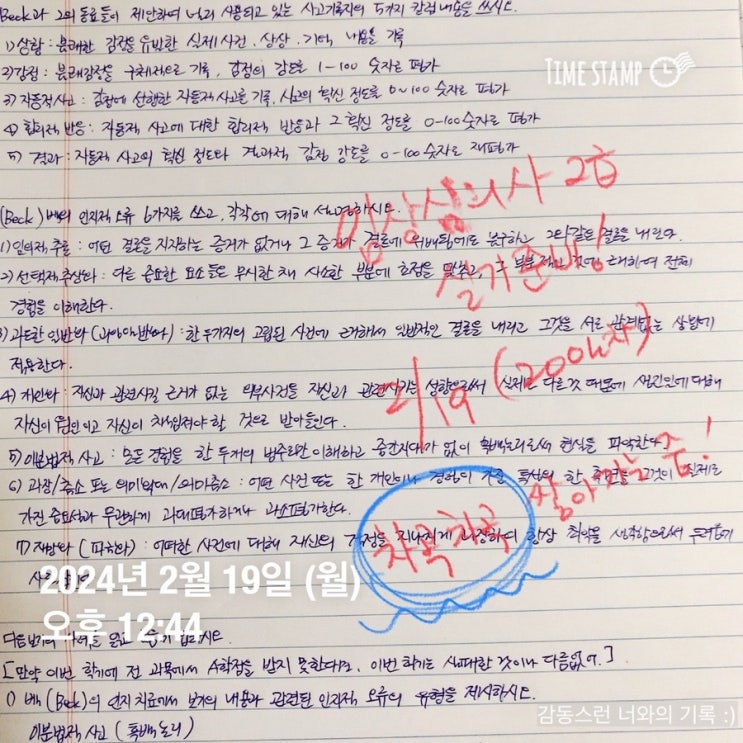 Beck과 그의 동료들이 제안하여 널리 사용되고 있는 사고기록지의 5가지 칼럼 내용을 쓰시오.
1) 상황 : 불쾌한 감정을 유발한 실제사건, 상상, 기억 내용을 기록
TIME STAMP
2) 감정 : 불쾌감정을 구체적으로 기록, 감정의 강도를 1-100 숫자로 평가
3) 자동적사고 : 감정에 선행한 자동적사고를 기록, 사고의 확신 정도를 0~100 숫자로 평가
4) 합리적 반응 : 자동적 사고에 대한 합리적 반응과 그 확신 정도를 0-100숫자로 평가
5) 결과 : 자동적 사고의 확신 정도와 결과적 감정 강도를 0-100숫자로 재평가
임상심리사 2급
실기준비!
2/19 (200일차)
차곡차곡 쌓아가는 중!
(Beck) 벡의 인지적 오류 6가지를 쓰고, 각각에 대해 설명하시오.
1) 임의적 추론 : 어떤 결론을 지지하는 증거가 없거나 그 증거가 결론에 위배됨에도 불구하고 그와같은 결론을 내린다.
2) 선택적 추상화 : 다른 중요한 요소들은 무시한 채 사소한 부분에 초점을 맞추고, 그 부분적인 것에 근거하여 전체
경험을 이해한다.
3) 과도한 일반화 (과잉일반화) : 한두가지의 고립된 사건에 근거해서 일반적인 결론을 내리고 그것을 서로 관계없는 상황에
적용한다.
4) 개인화 : 자신과 관련시킬 근거가 없는 외부사건을 자신과 관련시키는 성향으로써 실제로 다른것 때문에 생긴일에 대해
자신이 원인이고 자신이 책임져야 할 것으로 받아들인다.
5) 이분법적 사고 : 모든 경험을 한 두개의 범주로만 이해하고 중간지대가 없이 흑백논리로써 현실을 파악한다.
6) 과장/축소 또는 의미확대/의미축소 : 어떤 사건 또는 한 개인이나 경험이 가진 특성의 한 측면을 그것이 실제로
가진 중요성과 무관하게 과대평가하거나 과소평가한다.
7) 재앙화 (파국화) : 어떠한 사건에 대해 자신의 걱정을 지나치게 과장하여 항상 최악을 생각함으로써 두려움에
2024년 2월 19일 (월)
오후 12:44
다음보기의 읽고 답하시오
[만약 이번 학기에 전 과목에서 A학점을 받지 못한다면, 이번 학기는 실패한 것이나 다름없어.]
1) 벡(Beck)의 인지치료에서 보기의 내용과 관련된 인지적 오류의 유형을 제시하시오.
이분법적 사고 (흑백논리)
감동스런 너와의 기록 :)